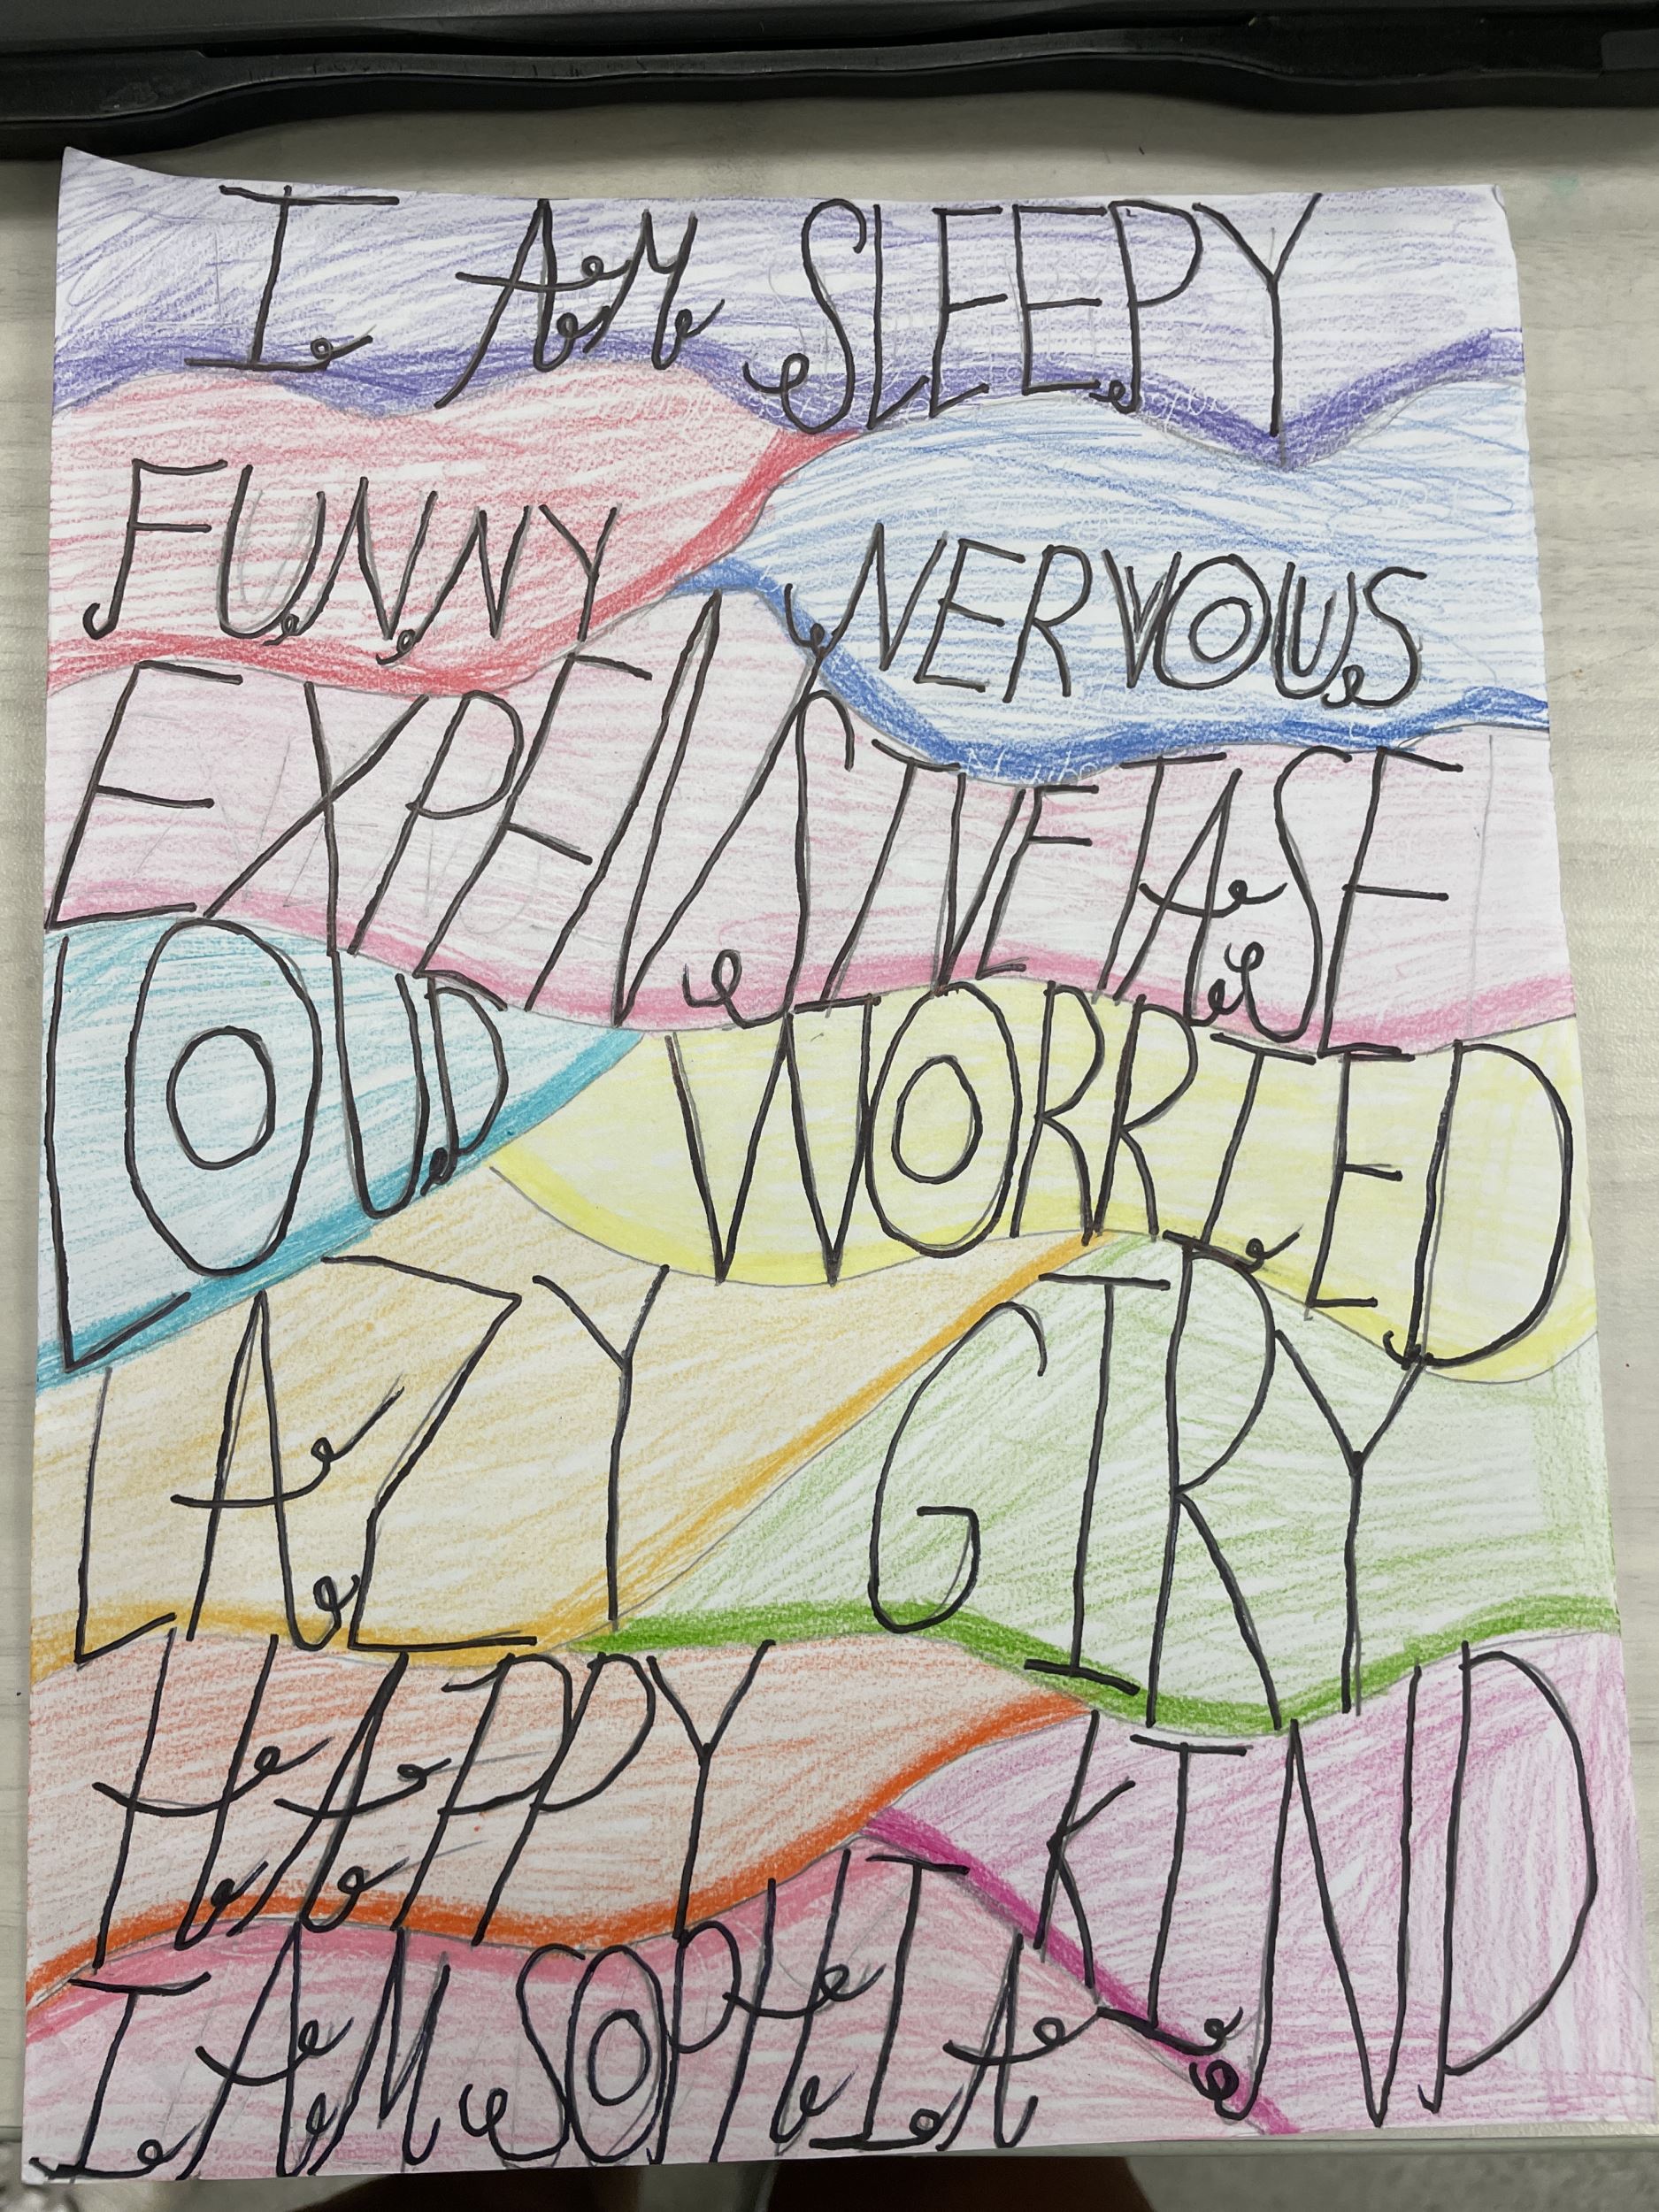 I AM SLEEPY
FUNNY NERVOUS
EXPENSIVE TASE
LOUD WORRIED
LAZY GIRY
HAPPY KIND
I AM SOPHIA